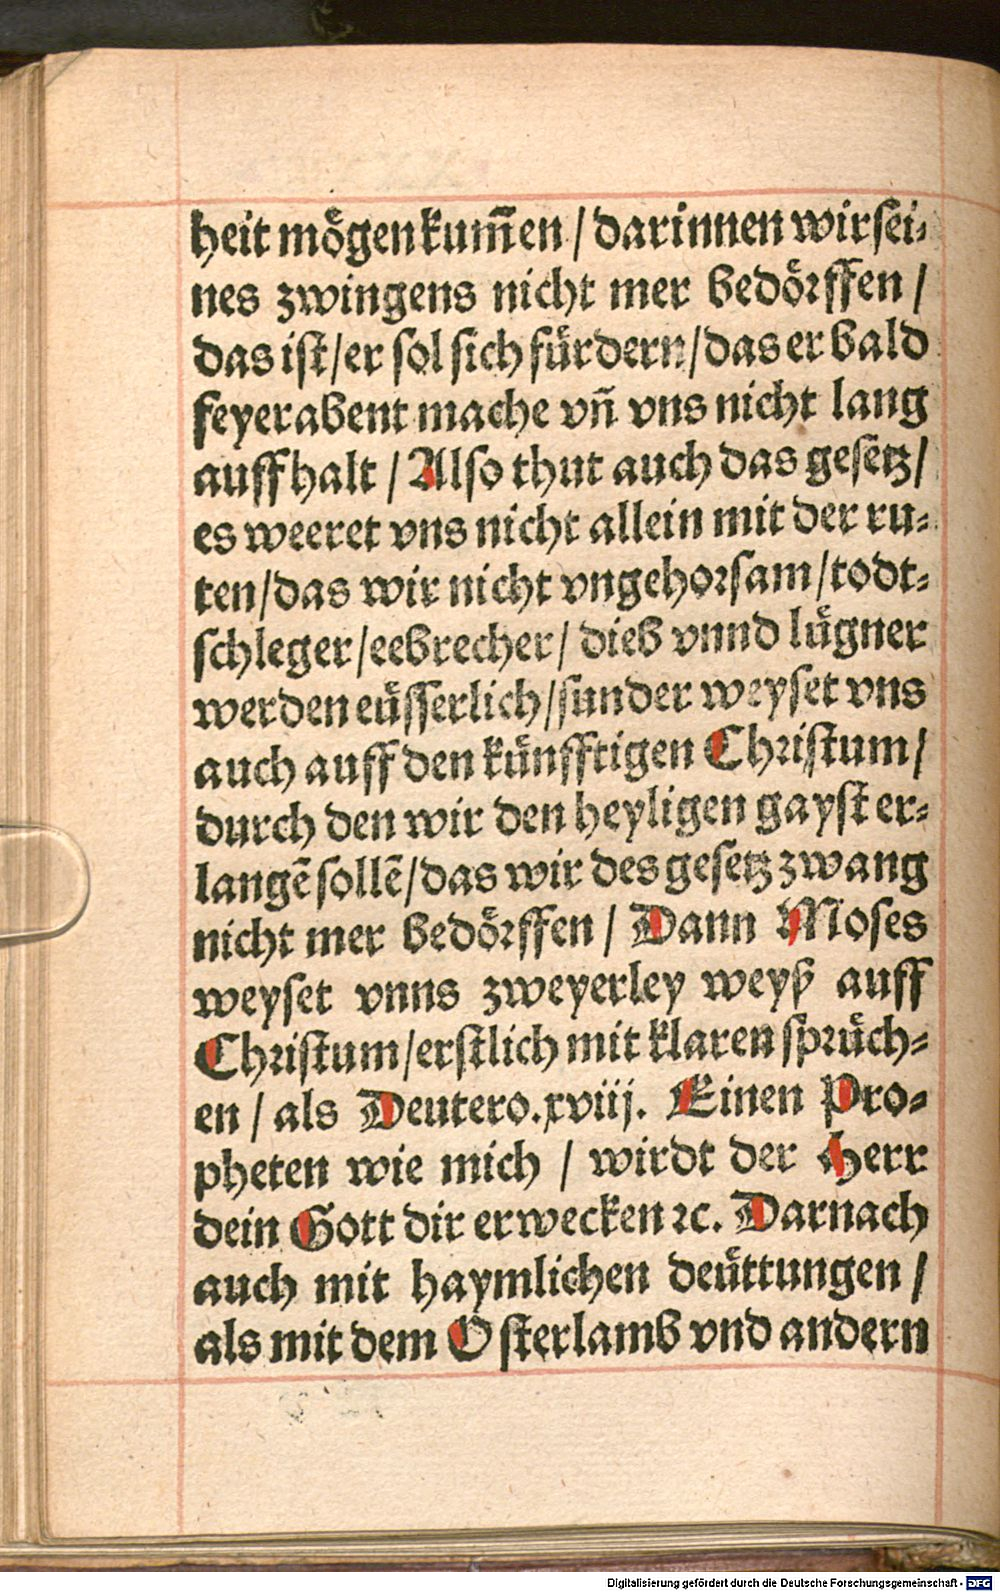 heit mögen kum̃en / darinnen wir sei-
nes zwingens nicht mer bedörffen /
das ist / er sol sich fürdern / das er bald
feyerabent mache vñ vns nicht lang
auffhalt / Also thut auch das gesetz /
es weeret vns nicht allein mit der ru-
ten / das wir nicht vngehorsam / todt-
schleger / eebrecher / dieb vnnd lügner
werden eüsserlich / sunder weyset vns
auch auff den künfftigen Christum /
durch den wir den heyligen gayst er-
langē sollē / das wir des gesetz zwang
nicht mer bedörffen / Dann Moses
weyset vnns zweyerley weyß auff
Christum / erstlich mit klaren sprüch-
en / als Deutero. xviij. Einen Pro-
pheten wie mich / wirdt der Herr
dein Gott dir erwecken ꝛc. Darnach
auch mit haymlichen deüttungen /
als mit dem Osterlamb vnd andern
Digitalisierung gefördert durch die Deutsche Forschungsgemeinschaft - DFG